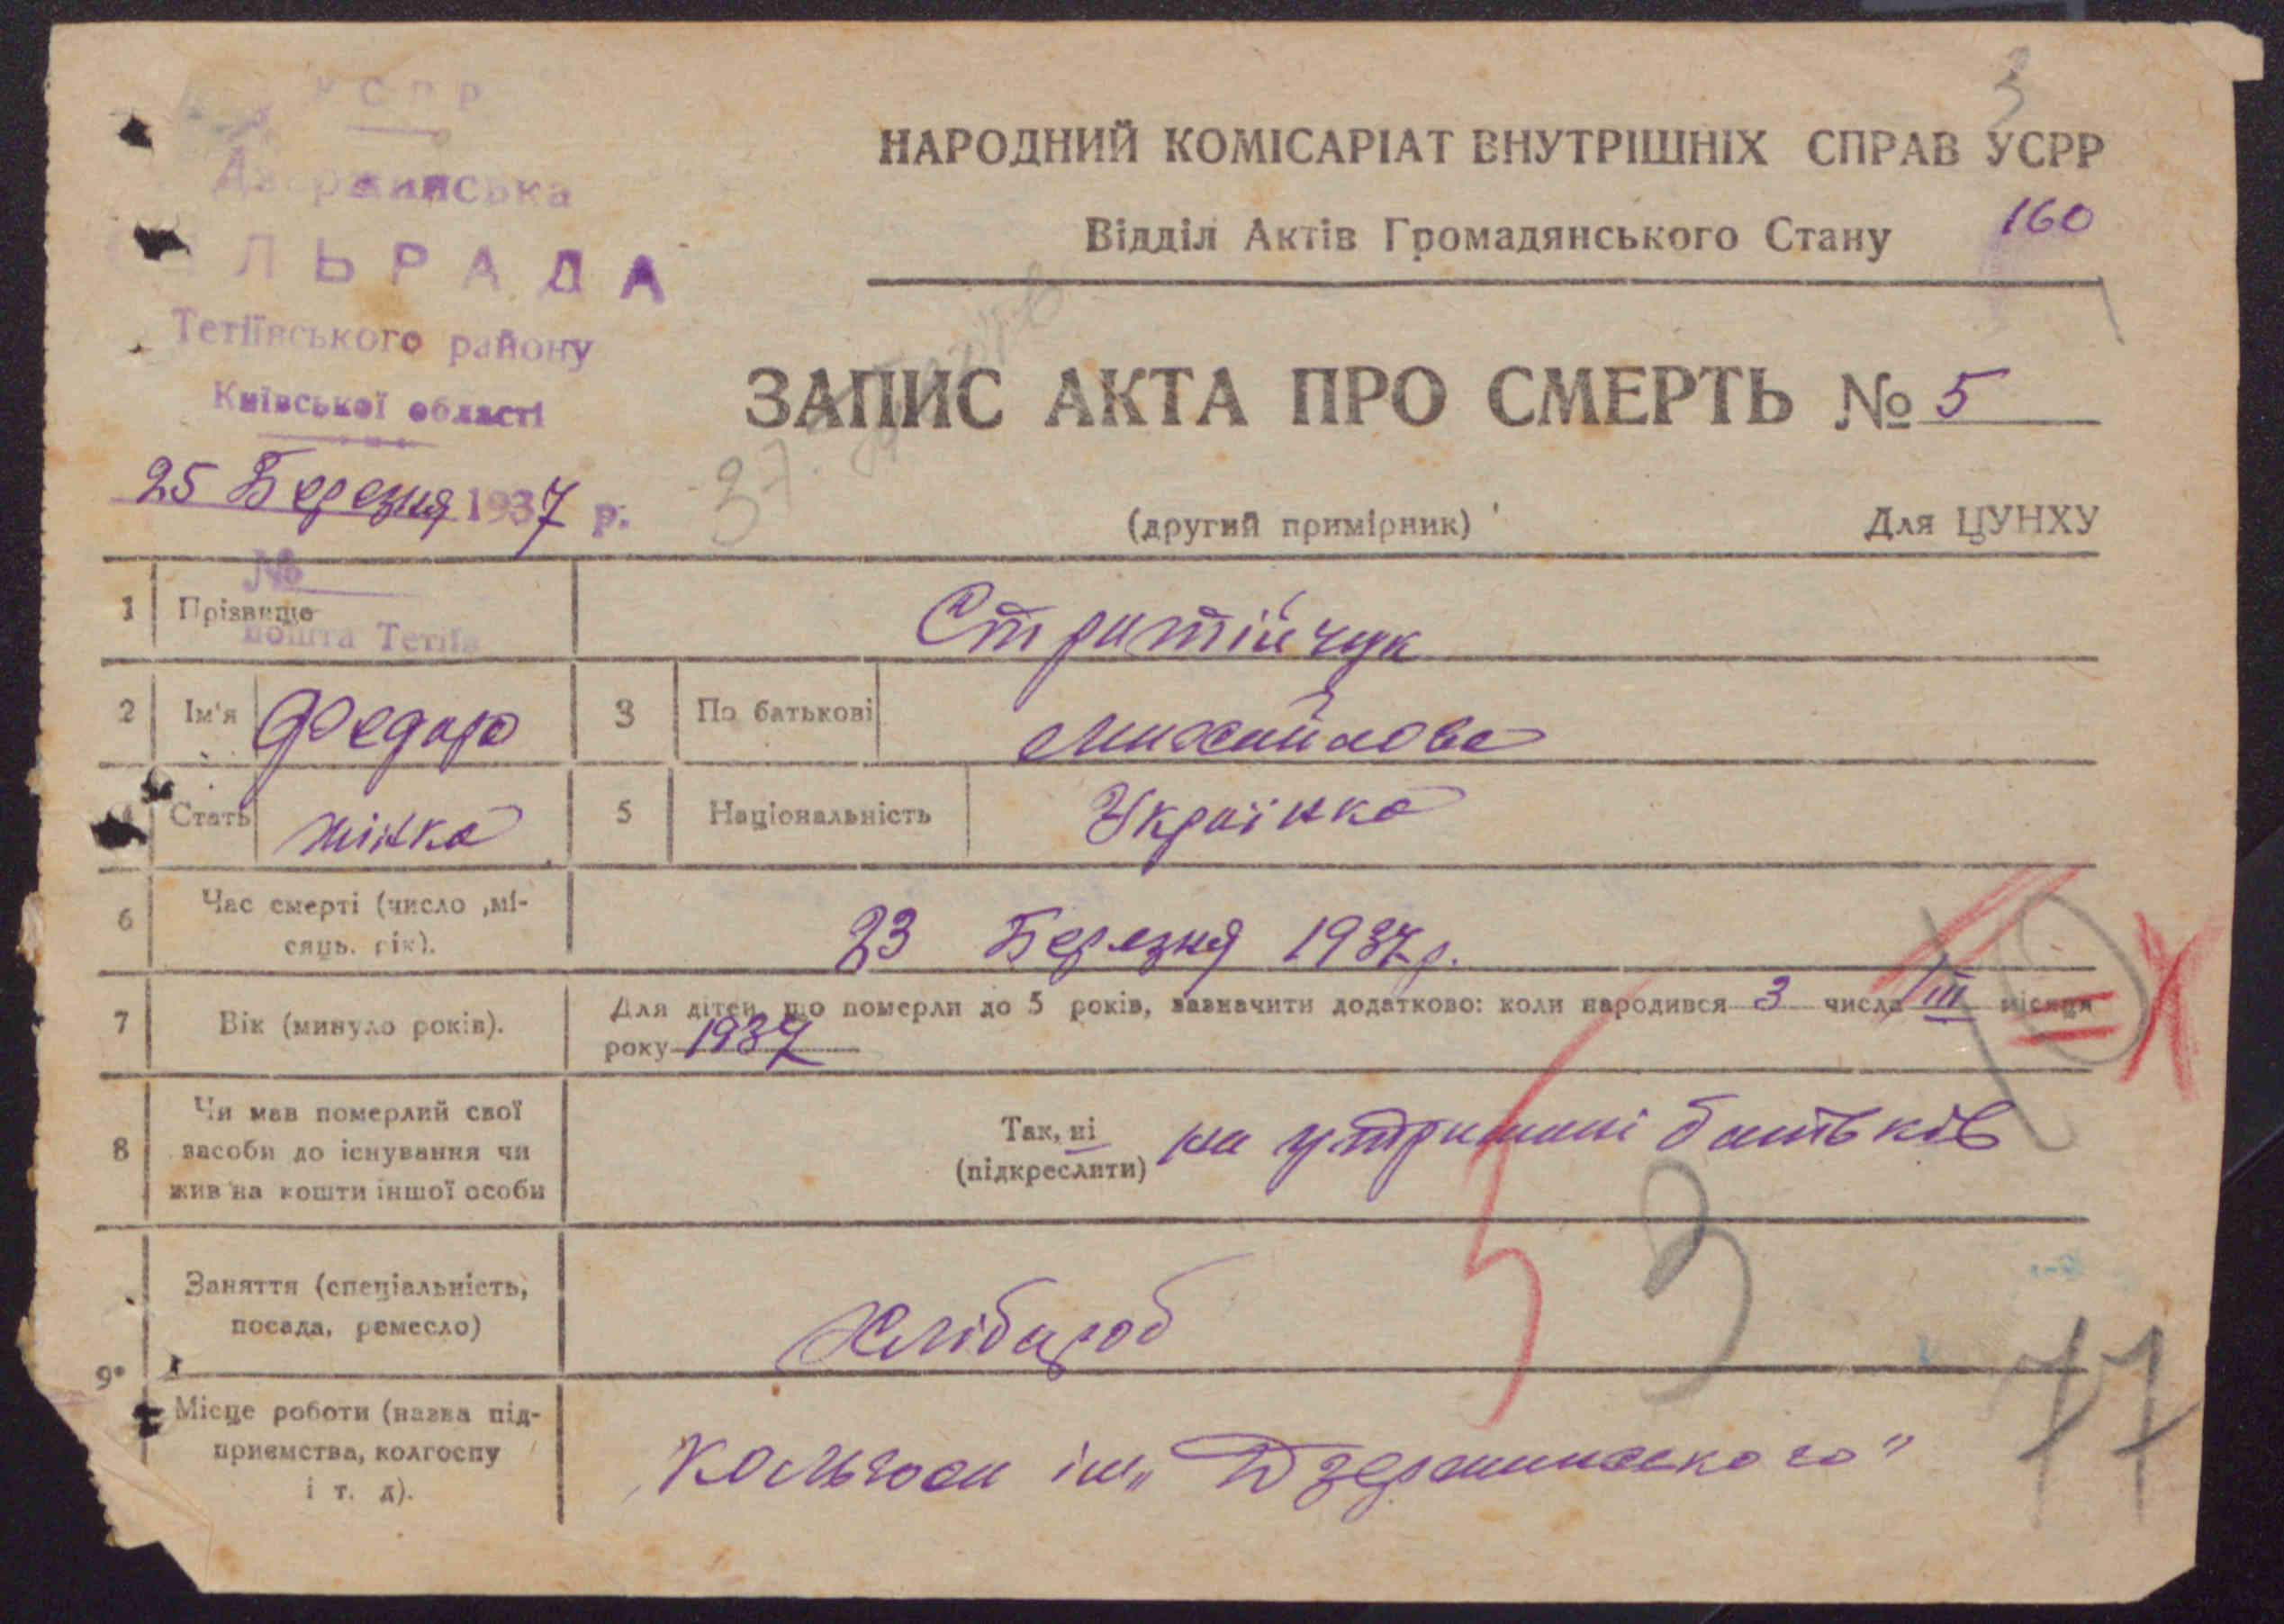 УСРР
3
Дзержинська
СІЛЬРАДА
Тетіївського району
Київської області
25 Березня 1937 р.
№
пошта Тетіїв
НАРОДНИЙ КОМІСАРІАТ ВНУТРІШНІХ СПРАВ УСРР
Відділ Актів Громадянського Стану 160
ЗАПИС АКТА ПРО СМЕРТЬ № 5
37.
(другий примірник) Для ЦУНХУ
1 Прізвище Стратійчук
2 Ім'я Федора 3 По батькові Михайлова
4 Стать жінка 5 Національність Українка
6 Час смерті (число ,мі-
сяць. рік). 23 Березня 1937 р.
7 Вік (минуло років). Для дітей, що померли до 5 років, зазначити додатково: коли народився 3 числа III місяця
року 1937
8 Чи мав померлий свої
засоби до існування чи
жив на кошти іншої особи
Так, ні
(підкреслити) на утриманні батьків
3
9 Заняття (спеціальність,
посада, ремесло) Хлібороб
77
Місце роботи (назва під-
приємства, колгоспу
і т. д). Кольгосп ім„ Дзержинського"